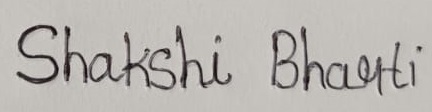 Shakshi Bharti